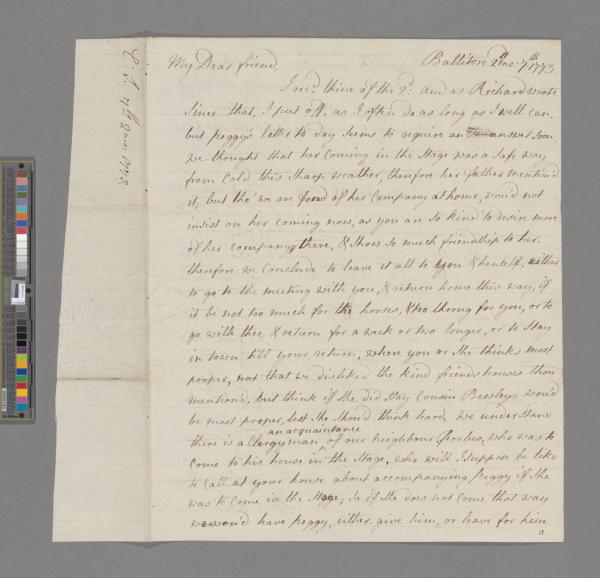 My Dear friend,
Ballitore 2d mo: 7th 1773.
I recd. thine of the 2d: and as Richard wrote
Since that, I put off, as I often do as long as I well can.
but peggy's letter to day seems to require an answer soon.
we thought that her coming in the Stage was a Safe way
from Cold this Sharp weather, therefore her father mention'd
it, but tho' we are fond of her Company at home, wou'd not
insist on her coming now, as you are so kind to desire more
of her company there, & Show so much friendship to her.
therefore we Conclude to leave it all to you & herself, either
to go to the meeting with you, & return home this way, if
it be not too much for the horses, & too throng for you, or to
go with thee & return for a week or two longer, or to Stay
in town till your return, where you or She thinks most
proper, not that we disliked the kind friends houses thou
mention'd, but think if She did Stay Cousin Bewleys wou'd
be most proper, lest She Shou'd think hard. we understand
there is a Clergyman an acquaintance of our neighbour Forbes, who was to
Come to his house in the Stage, who will I Suppose be like
to call at your house about accompanying Peggy if She
was to Come in the Stage; So if She does not come that way
we wou'd have peggy, either give him, or leave for him
a